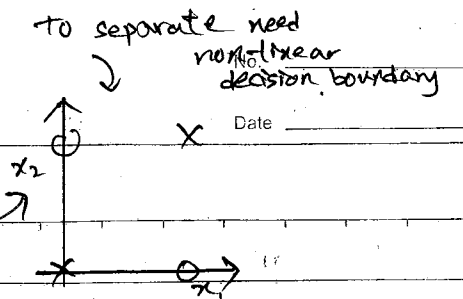 To separate need
non-linear
No.
decision boundary
Date
x2
x1